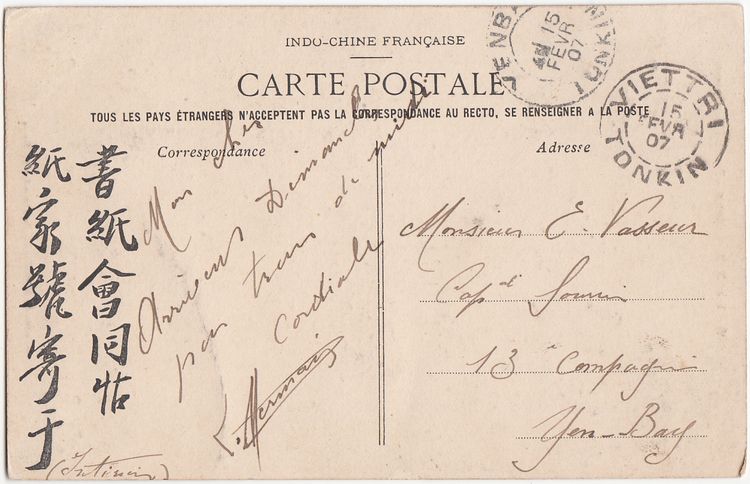 INDO-CHINE FRANÇAISE
CARTE POSTALE
TOUS LES PAYS ÉTRANGERS N'ACCEPTENT PAS LA CORRESPONDANCE AU RECTO, SE RENSEIGNER A LA POSTE
Correspondance
Adresse
YENB
TONKIN
15
FEVR
07
VIETTRI
15
FEVR
07
TONKIN
書紙會同怙
紙家號寄于
Mon cher
Arriverai Dimanche
par train de midi
Cordiale
Monsieur E. Vasseur
13e Compagnie
Yen-Bay